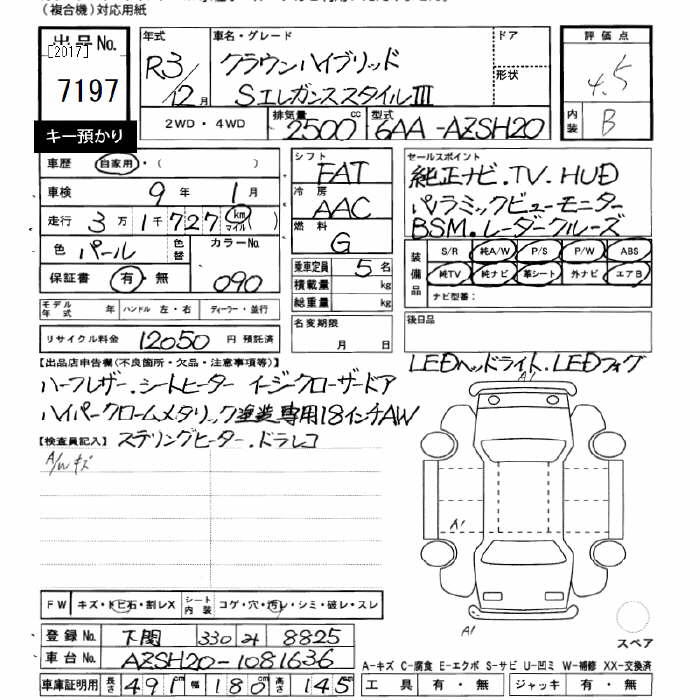 (複合機)対応用紙
出品No.
[2017]
7197
キー預かり
年式
R3/12月
車名・グレード
クラウンハイブリッド
SエレガンススタイルIII
ドア
形状
評価点
4.5
内装
B
2WD・4WD
排気量
2500cc
型式
6AA-AZSH20
車歴 自家用・( )
車検 9年1月
走行 3万1千727 km マイル
色 パール 色替 カラーNo.
保証書 有・無 090
シフト
FAT
冷房
AAC
燃料
G
乗車定員 5名
積載量 kg
総重量 kg
セールスポイント
純正ナビ.TV.HUD
パノラミックビューモニター
BSM.レーダークルーズ
装備品
S/R 純A/W P/S P/W ABS
純TV 純ナビ 革シート 外ナビ エアB
ナビ型番:
モデル年式 年 ハンドル 左・右 ディーラー・並行
リサイクル料金 12050 円 預託済
名変期限
月 日
後日品
【出品店申告欄(不良箇所・欠品・注意事項等)】
LEDヘッドライト.LEDフォグ
ハーフレザー.シートヒーター イージークローザードア
ハイパークロームメタリック塗装専用18インチAW
【検査員記入】 ステリングヒーター.ドラレコ
A/Wキズ
A1
A1
A1
FW キズ・トビ石・割レX シート内装 コゲ・穴・汚レ・シミ・破レ・スレ
登録No. 下関 330 8825
車台No. AZSH20-1081636
車庫証明用 長さ 491cm 幅 180cm 高さ 145cm
スペア
A-キズ C-腐食 E-エクボ S-サビ U-凹ミ W-補修 XX-交換済
工具 有・無 ジャッキ 有・無